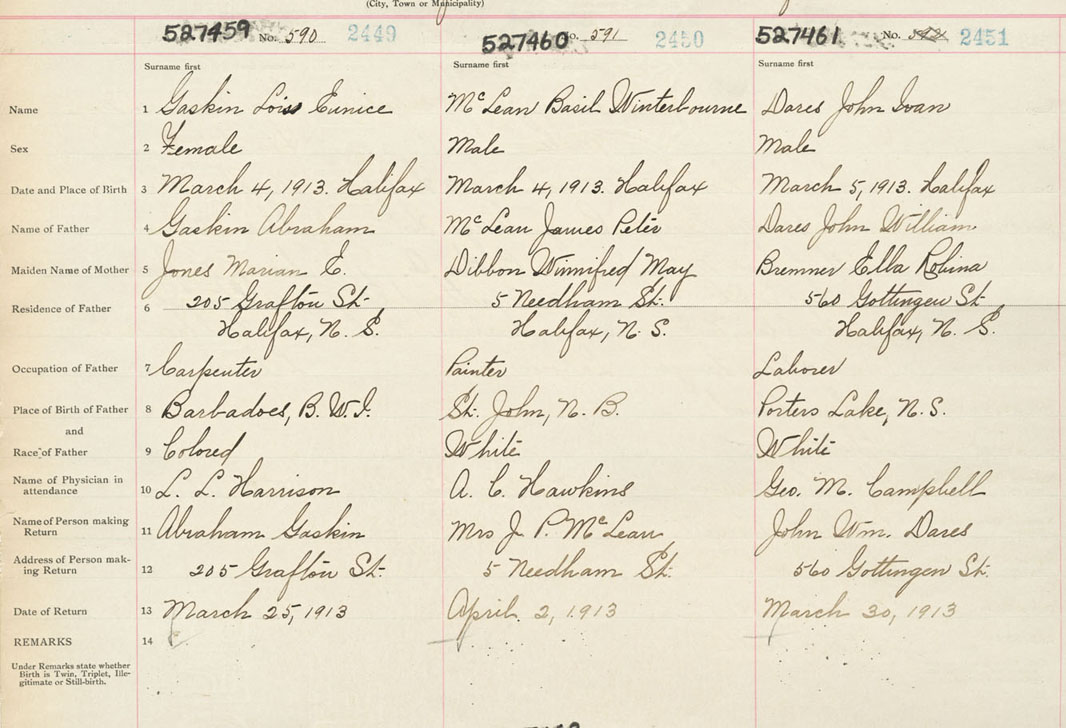 (City, Town or Municipality)
527459 No. 590 2449 527460 No. 591 2450 527461 No. 592 2451
Surname first Surname first Surname first
Name 1 Gaskin Lois Eunice McLean Basil Winterbourne Dares John Ivan
Sex 2 Female Male Male
Date and Place of Birth 3 March 4, 1913. Halifax March 4, 1913. Halifax March 5, 1913. Halifax
Name of Father 4 Gaskin Abraham McLean James Peter Dares John William
Maiden Name of Mother 5 Jones Marian E. Dibbon Winnifred May Bremner Ella Robina
Residence of Father 6 205 Grafton St. 5 Needham St. 560 Gottingen St.
Halifax, N. S. Halifax, N. S. Halifax, N. S.
Occupation of Father 7 Carpenter Painter Laborer
Place of Birth of Father 8 Barbadoes, B. W. I. St. John, N. B. Porters Lake, N. S.
and
Race of Father 9 Colored White White
Name of Physician in
attendance 10 L. L. Harrison A. C. Hawkins Geo. M. Campbell
Name of Person making
Return 11 Abraham Gaskin Mrs J. P. McLean John Wm. Dares
Address of Person mak-
ing Return 12 205 Grafton St. 5 Needham St. 560 Gottingen St.
Date of Return 13 March 25, 1913 April 2, 1913 March 30, 1913
REMARKS 14
Under Remarks state whether
Birth is Twin, Triplet, Ille-
gitimate or Still-birth.